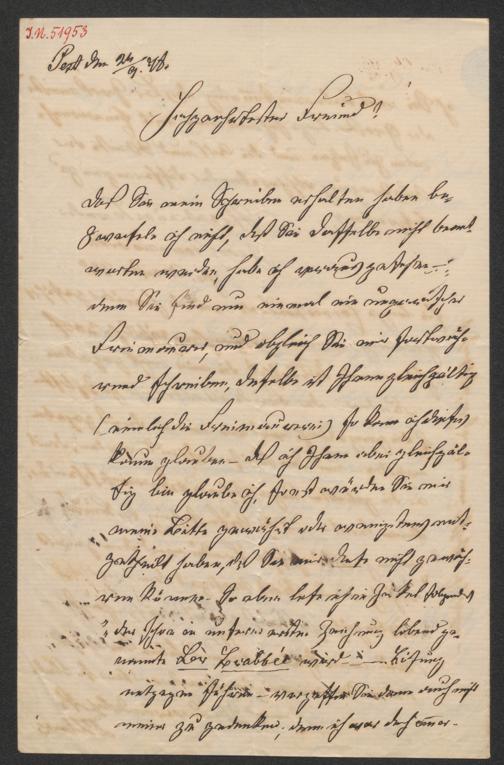 J.N. 51953
Pest den 24/9. 78.
Hochgeehrtester Freund!
Daß Sie mein Schreiben erhalten haben be-
zweifele ich nicht, daß Sie dasselbe nicht beant-
worten werden habe ich vorausgesehen —
denn Sie sind nun einmal ein ungarischer
Freimaurer, und obgleich Sie mir fortwäh-
rend schreiben, dieselbe ist Ihnen gleichgültig
(nemlich die Freimaurerei) so kann ich dieses
kaum glauben — daß ich Ihnen aber gleichgül-
tig bin glaube ich, sonst würden Sie mir
meine Bitte gewährt oder wenigstens mit-
getheilt haben, daß Sie mir diese nicht gewäh-
ren können. So aber lese ich im Zirkel folgendes
"der schon in unserer ersten Zeichnung lobend ge-
nannte Br Brabbée wird — Lösung
entgegen führen — vergessen Sie dann auch nicht
meiner zu gedenken, denn ich war doch